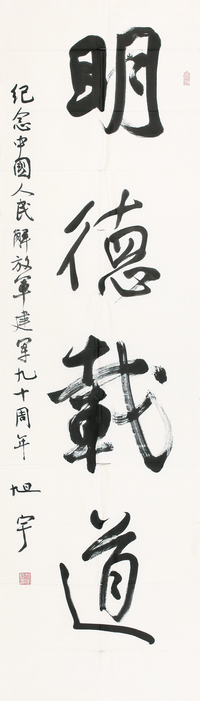 明德载道
纪念中國人民解放军建军九十周年
旭宇